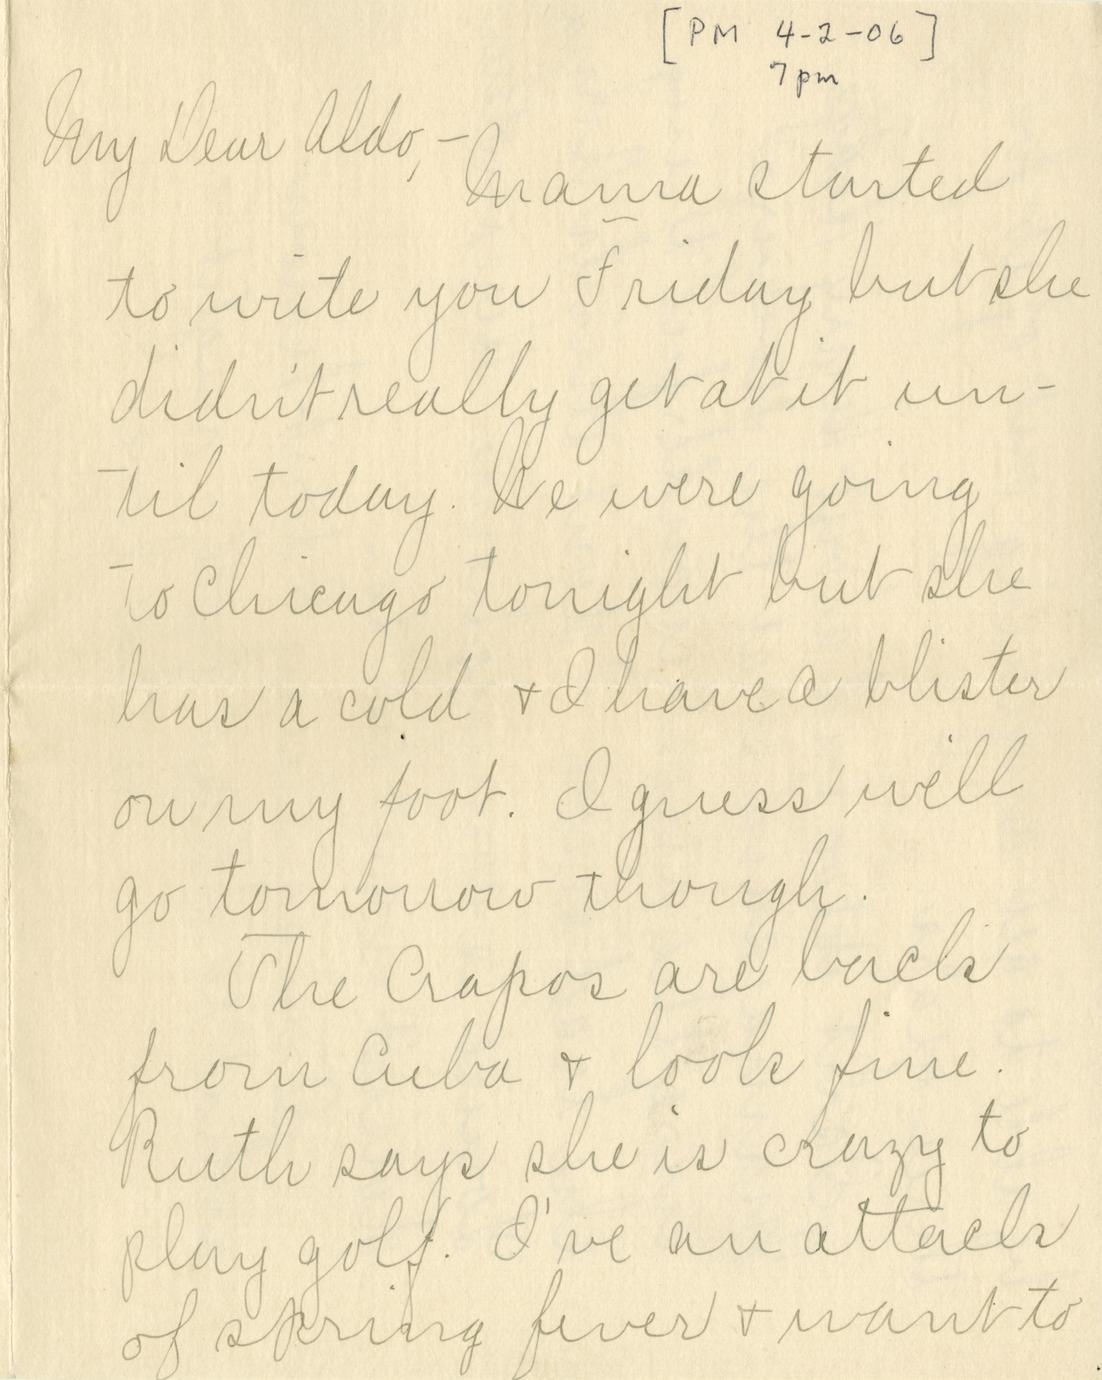 [PM 4-2-06]
7pm
My Dear Aldo,—
Mama started
to write you Friday but she
didn't really get at it un-
til today. We were going
to Chicago tonight but she
has a cold & I have a blister
on my foot. I guess will
go tomorrow though.
The Crapos are back
from Cuba & look fine.
Ruth says she is crazy to
play golf. I've an attack
of spring fever & want to